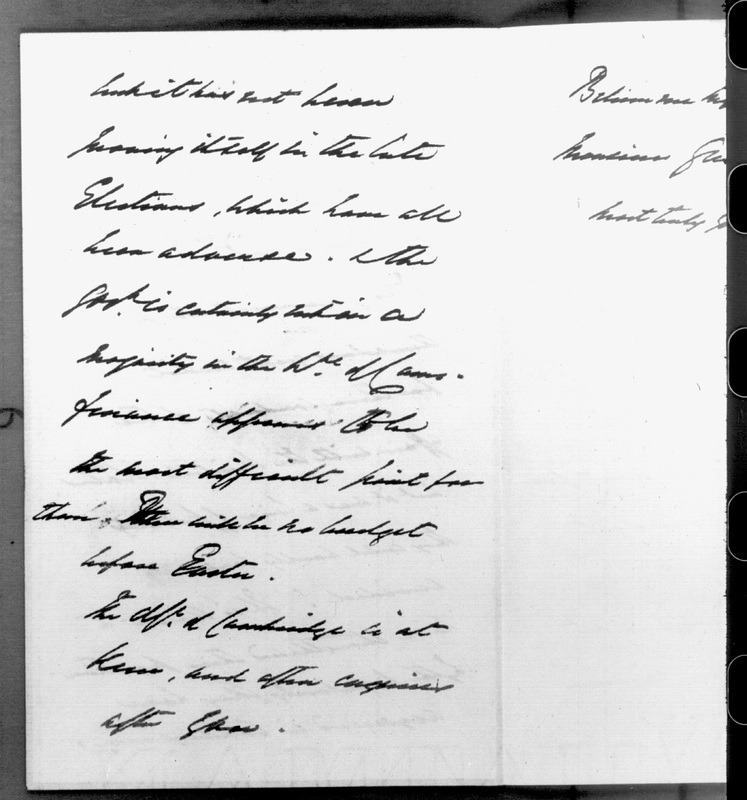 but it has not been
proving itself in the late
Elections, which have all
been adverse. & the
Govt. is certainly not in a
majority in the He. of Coms.
finance appears to be
the most difficult point for
them. There will be no budget
before Easter.
The Dss. of Cambridge is at
Kew, and often enquires
after you.
Believe me
Monsieur
most truly